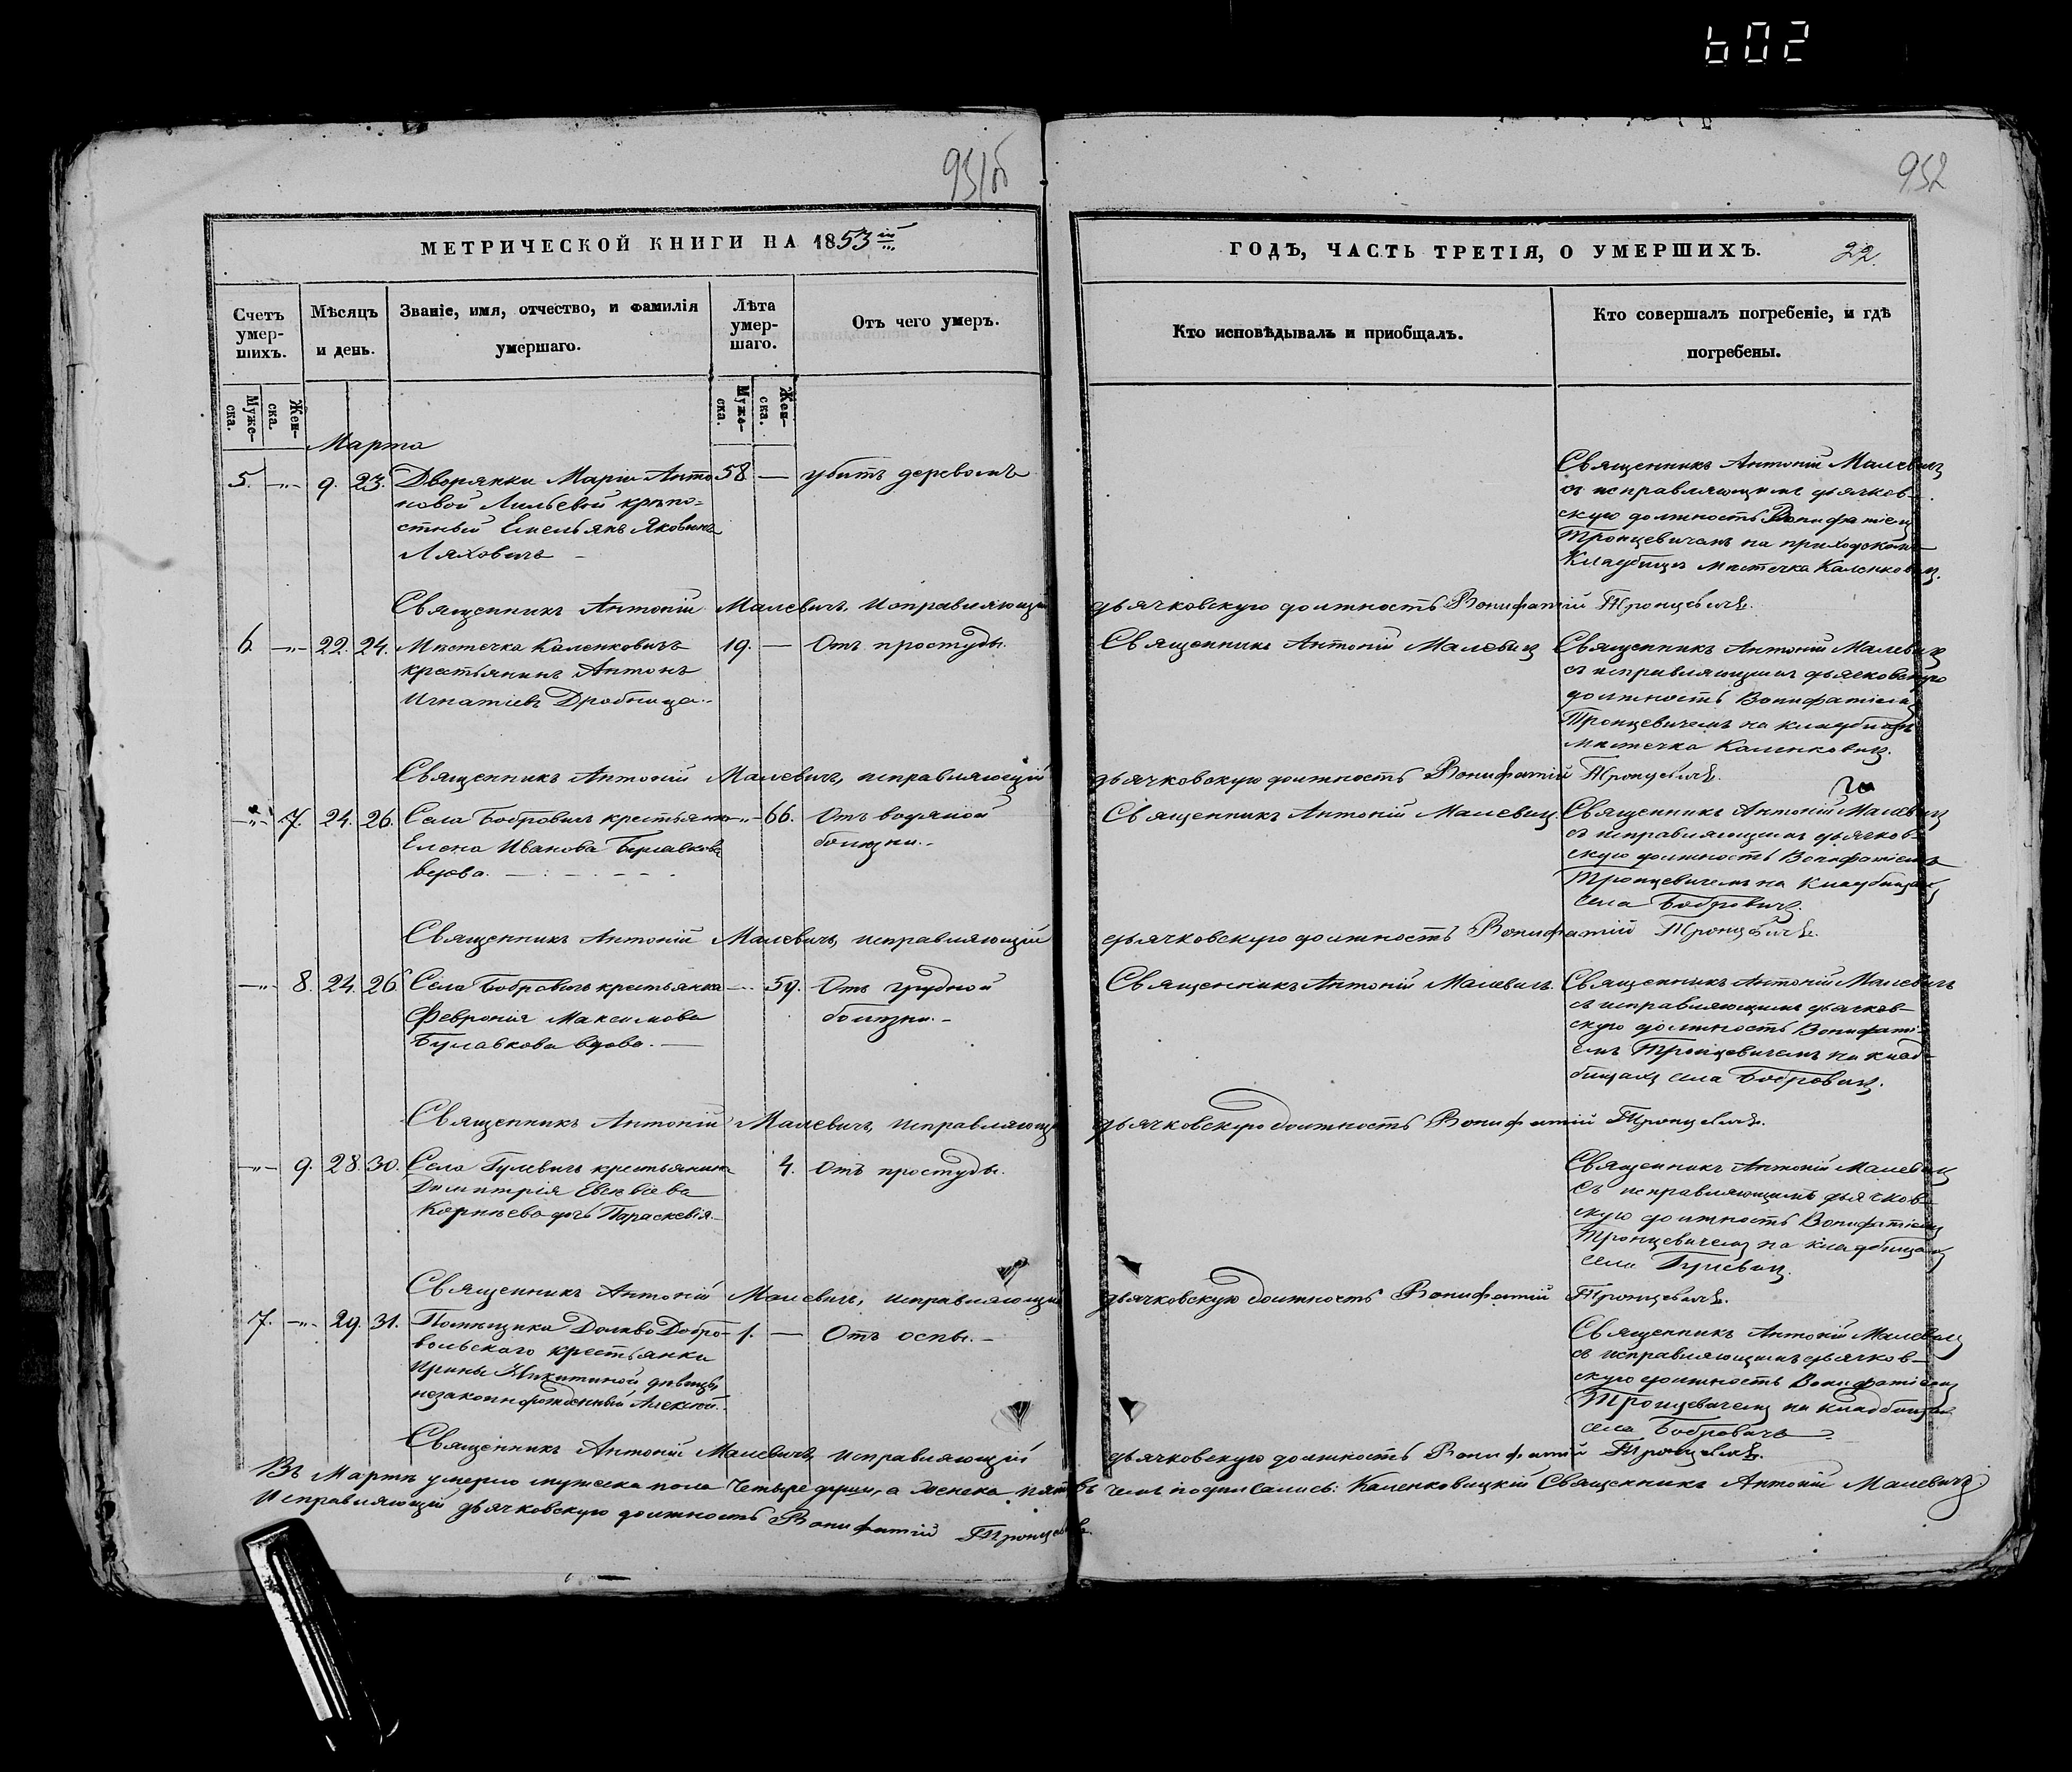 602
931об
952
МЕТРИЧЕСКОЙ КНИГИ НА 1853й
ГОДЪ, ЧАСТЬ ТРЕТІЯ, О УМЕРШИХЪ. 22.
Счетъ умер-шихъ.
Мѣсяцъ и день.
Званіе, имя, отчество, и фамилія умершаго.
Лѣта умер-шаго.
Отъ чего умеръ.
Кто исповѣдывалъ и приобщалъ.
Кто совершалъ погребеніе, и гдѣ погребены.
Муже-ска.
Жен-ска.
Муже-ска.
Жен-ска.
Марта
5. —"— 9. 23. Дворянки Маріи Анто 58 — убитъ деревомъ
новой крѣпо=
стный Емельянъ Яковлевъ
Ляховичъ —
Священникъ Антоній Малевичъ
съ исправляющимъ дьячков-
скую должность Вонифатіемъ
Тронцевичемъ на приходскомъ
Кладбищѣ мѣстечка Каленковичъ.
Священникъ Антоній Малевичъ, Исправляющій дьячковскую должность Вонифатій Тронцевичъ.
6. —"— 22. 24. Мѣстечка Каленковичъ 19. — Отъ простуды. Священникъ Антоній Малевичъ
крестьянинъ Антонъ
Игнатіевъ Дробница.
Священникъ Антоній Малевичъ
съ исправляющимъ дьячковскую
должность Вонифатіемъ
Тронцевичемъ на кладбищѣ
мѣстечка Каленковичъ.
Священникъ Антоній Малевичъ, исправляющій дьячковскую должность Вонифатій Тронцевичъ.
—"— 7. 24. 26. Села Бобровичъ крестьянка —"— 66. Отъ водяной Священникъ Антоній Малевичъ.
Елена Иванова Булавкова болѣзни.
вдова.
Священникъ Антоній Малевичъ
съ исправляющимъ дьячков-
скую должность Вонифатіемъ
Тронцевичемъ на кладбищахъ
села Бобровичъ.
Священникъ Антоній Малевичъ, исправляющій дьячковскую должность Вонифатій Тронцевичъ.
—"— 8. 24. 26. Села Бобровичъ крестьянка — 59. Отъ грудной Священникъ Антоній Малевичъ.
Февронія Максимова болѣзни. —
Булавкова вдова. —
Священникъ Антоній Малевичъ
съ исправляющимъ дьячков-
скую должность Вонифаті-
емъ Тронцевичемъ на клад-
бищахъ села Бобровичъ.
Священникъ Антоній Малевичъ, исправляющій дьячковскую должность Вонифатій Тронцевичъ.
—"— 9. 28. 30. Села Гулевичъ крестьянина 4. Отъ простуды.
Димитрія Евсевіева
Корнѣева дочь Параскевія.
Священникъ Антоній Малевичъ
Съ исправляющимъ дьячков-
скую должность Вонифатіемъ
Тронцевичемъ на кладбищахъ
села Гулевичъ.
Священникъ Антоній Малевичъ, исправляющій дьячковскую должность Вонифатій Тронцевичъ.
7. —"— 29. 31. Помѣщика Доливо Добро- 1. — Отъ оспы. —
вольскаго крестьянки
Ирины Никитиной дѣвицы
незаконнорожденный Алексій.
Священникъ Антоній Малевичъ
съ исправляющимъ дьячков-
скую должность Вонифатіемъ
Тронцевичемъ на кладбищахъ
села Бобровичъ
Священникъ Антоній Малевичъ, исправляющій дьячковскую должность Вонифатій Тронцевичъ.
Въ Мартѣ умерло мужеска пола четыре души, а женска пять въ чемъ подписались: Каленковицкій Священникъ Антоній Малевичъ
Исправляющій дьячковскую должность Вонифатій Тронцевичъ.